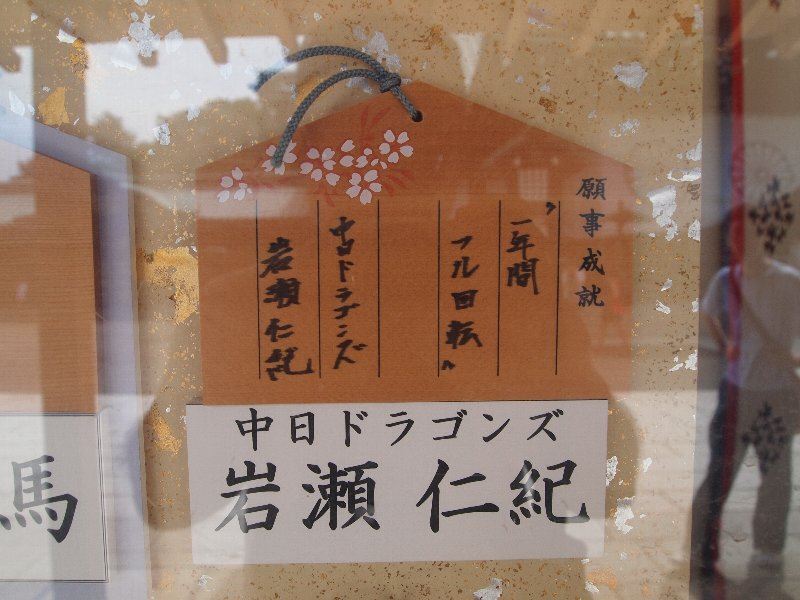 願事成就
〝一年間
フル回転〟
中日ドラゴンズ
岩瀬仁紀
中日ドラゴンズ
岩瀬 仁紀
馬